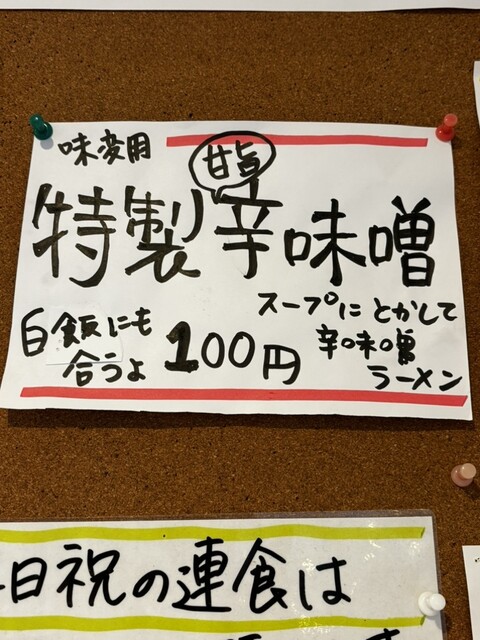 味変用
甘旨
特製辛味噌
スープにとかして
白飯にも
100円
辛味噌
合うよ
ラーメン
日祝の連食は